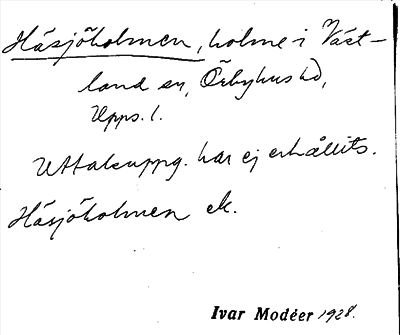 Håsjöholmen, holme i Väst-
land sn, Örbyhus hd,
Upps. l.
Uttalsuppg. har ej erhållits.
Håsjöholmen ek.
Ivar Modéer 1928.